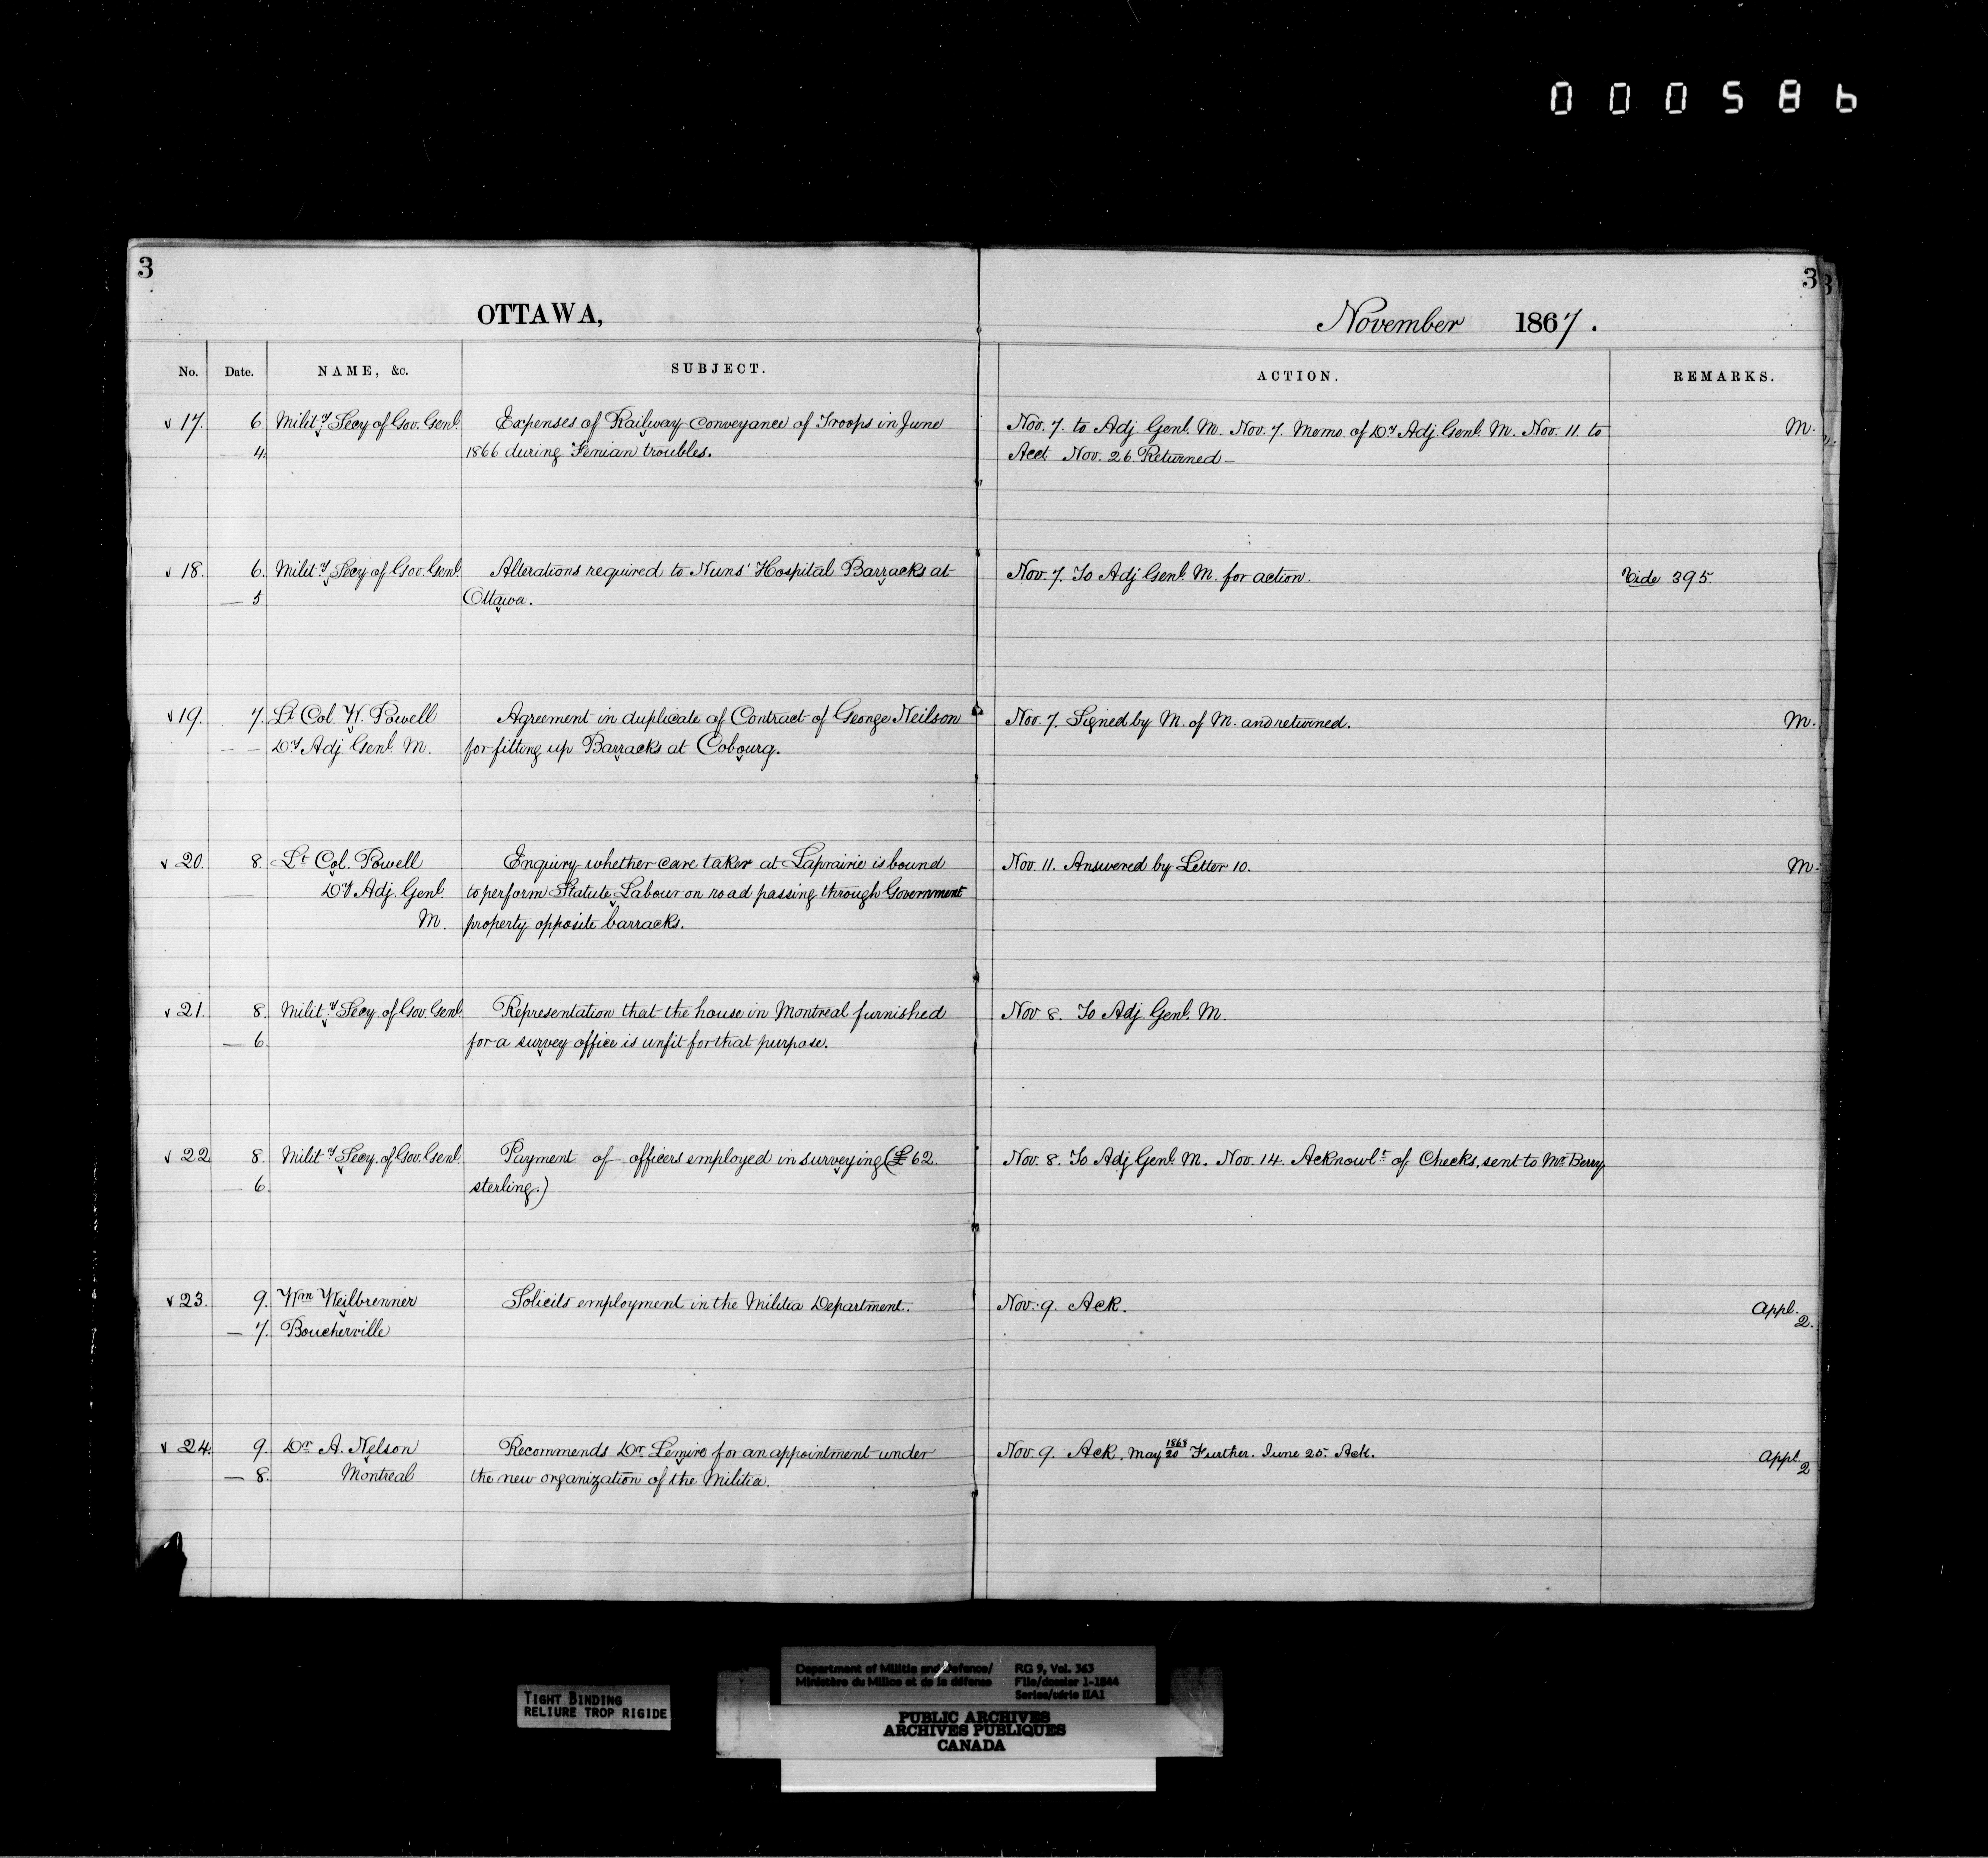 000586
3
3
3
OTTAWA,
November 1867.
No. Date. NAME, &c. SUBJECT. ACTION. REMARKS.
v 17. 6. Mility Secy of Gov. Genl. Expenses of Railway conveyance of Troops in June Nov. 7. to Adj Genl. M. Nov. 7. Memo. of Dy Adj. Genl. M. Nov. 11. to M.
— 4. 1866 during Fenian troubles. Acct Nov. 26 Returned —
v 18. 6. Mility Secy of Gov. Genl. Alterations required to Nuns' Hospital Barracks at Nov. 7. To Adj Genl. M. for action. Vide 395.
— 5 Ottawa.
v 19. 7. Lt Col. W. Powell Agreement in duplicate of Contract of George Neilson Nov. 7. Signed by M. of M. and returned. M.
— — Dy Adj. Genl. M. for fitting up Barracks at Cobourg.
v 20. 8. Lt Col. Powell Enquiry whether care taker at Laprairie is bound Nov. 11. Answered by Letter 10. M.
— Dy Adj. Genl. to perform Statute Labour on road passing through Government
M. property opposite barracks.
v 21. 8. Mility Secy of Gov. Genl. Representation that the house in Montreal furnished Nov. 8. To Adj. Genl. M.
— 6. for a survey office is unfit for that purpose.
v 22 8. Mility Secy. of Gov. Genl. Payment of officers employed in surveying (£62 Nov. 8. To Adj Genl. M. Nov. 14. Acknowlt of Checks, sent to Mr Berry
— 6. sterling.)
v 23. 9. Wm Weilbrenner Solicits employment in the Militia Department. Nov. 9. Ack. Appl.
— 7. Boucherville 2.
v 24. 9. Dr A. Nelson Recommends Dr Lemire for an appointment under Nov. 9. Ack. May 1868 20 Further. June 25. Ack. Appl.
— 8. Montreal the new organization of the Militia. 2
TIGHT BINDING
RELIURE TROP RIGIDE
Department of Militia and Defence/ RG 9, Vol. 363
Ministère du Milice et de la défense File/dossier 1-1844
Series/série IIA1
PUBLIC ARCHIVES
ARCHIVES PUBLIQUES
CANADA